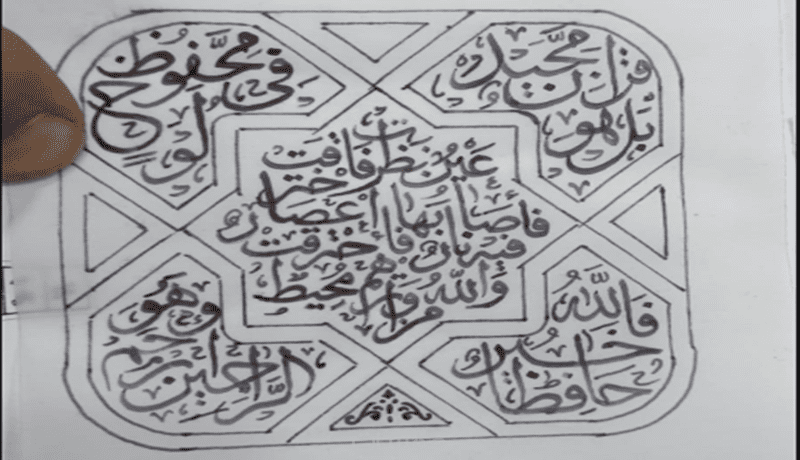 بَل هو قرآن مجيد
في لوح محفوظ
عين نظرت
فأصابها إعصار
فيه نار فاحترقت
والله من ورائهم محيط
فالله خير حافظا
وهو أرحم الراحمين